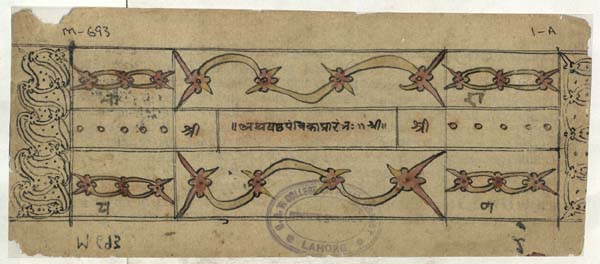 M-693
1-A
ना
रा
श्री ॥अथषष्ठपंचिकाप्रारंभः॥श्री॥ श्री
य
ण
LAHORE
M 693